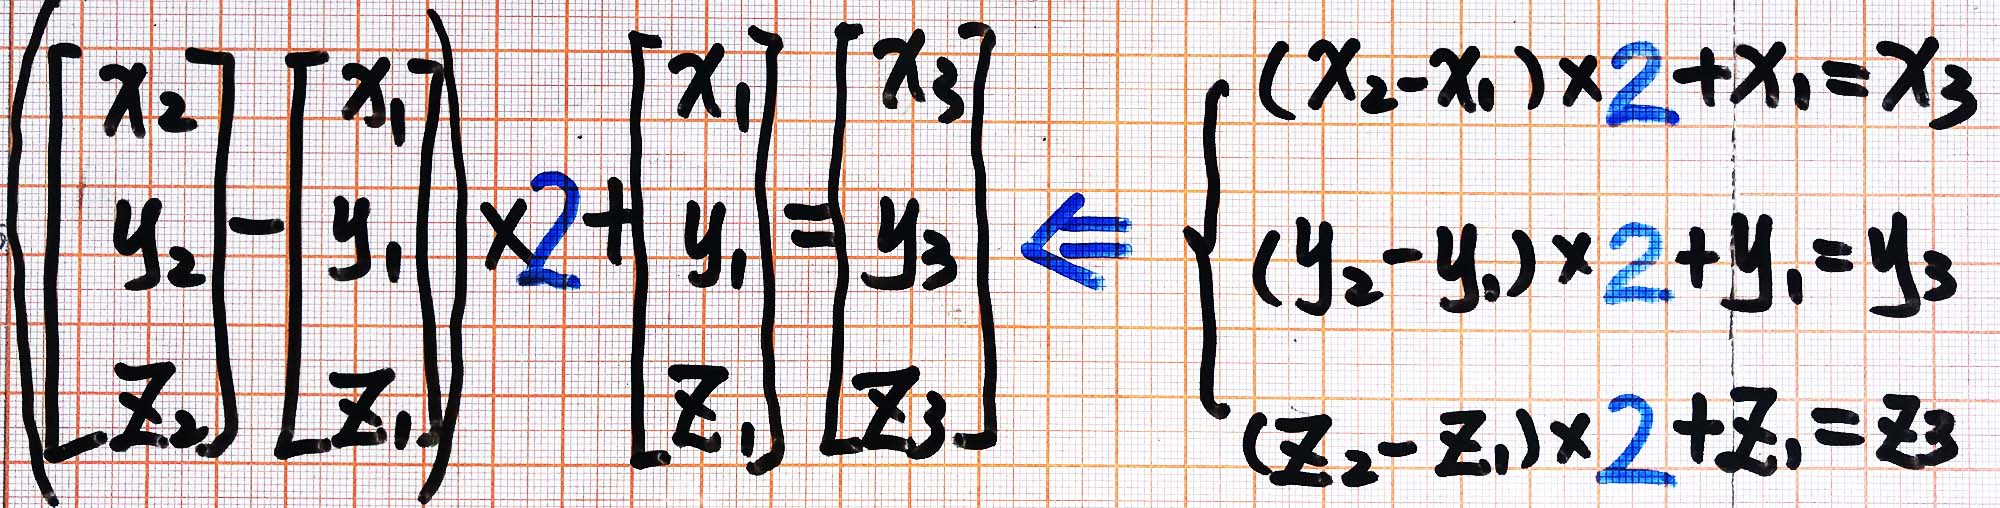 ([x₂ y₂ z₂] - [x₁ y₁ z₁]) × 2 + [x₁ y₁ z₁] = [x₃ y₃ z₃] ⇐
{ (x₂ - x₁) × 2 + x₁ = x₃
(y₂ - y₁) × 2 + y₁ = y₃
(z₂ - z₁) × 2 + z₁ = z₃